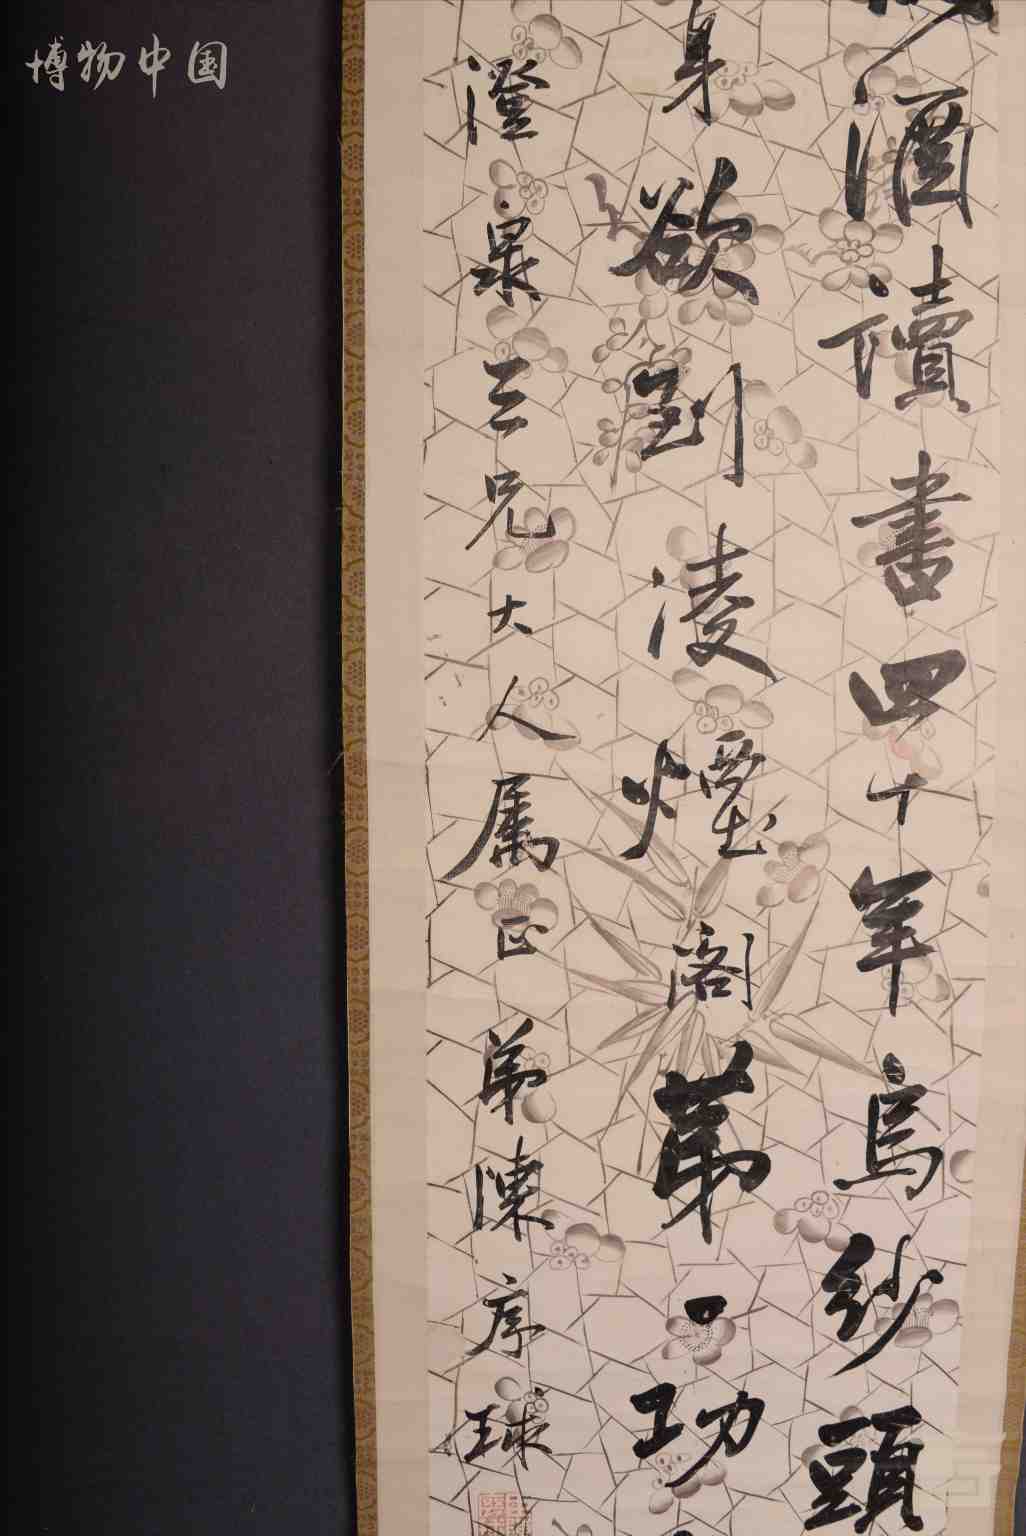 博物中国
酒讀書四十年烏紗頭
身欲到凌煙閣第一功
澄泉三兄大人属正 弟陳序球